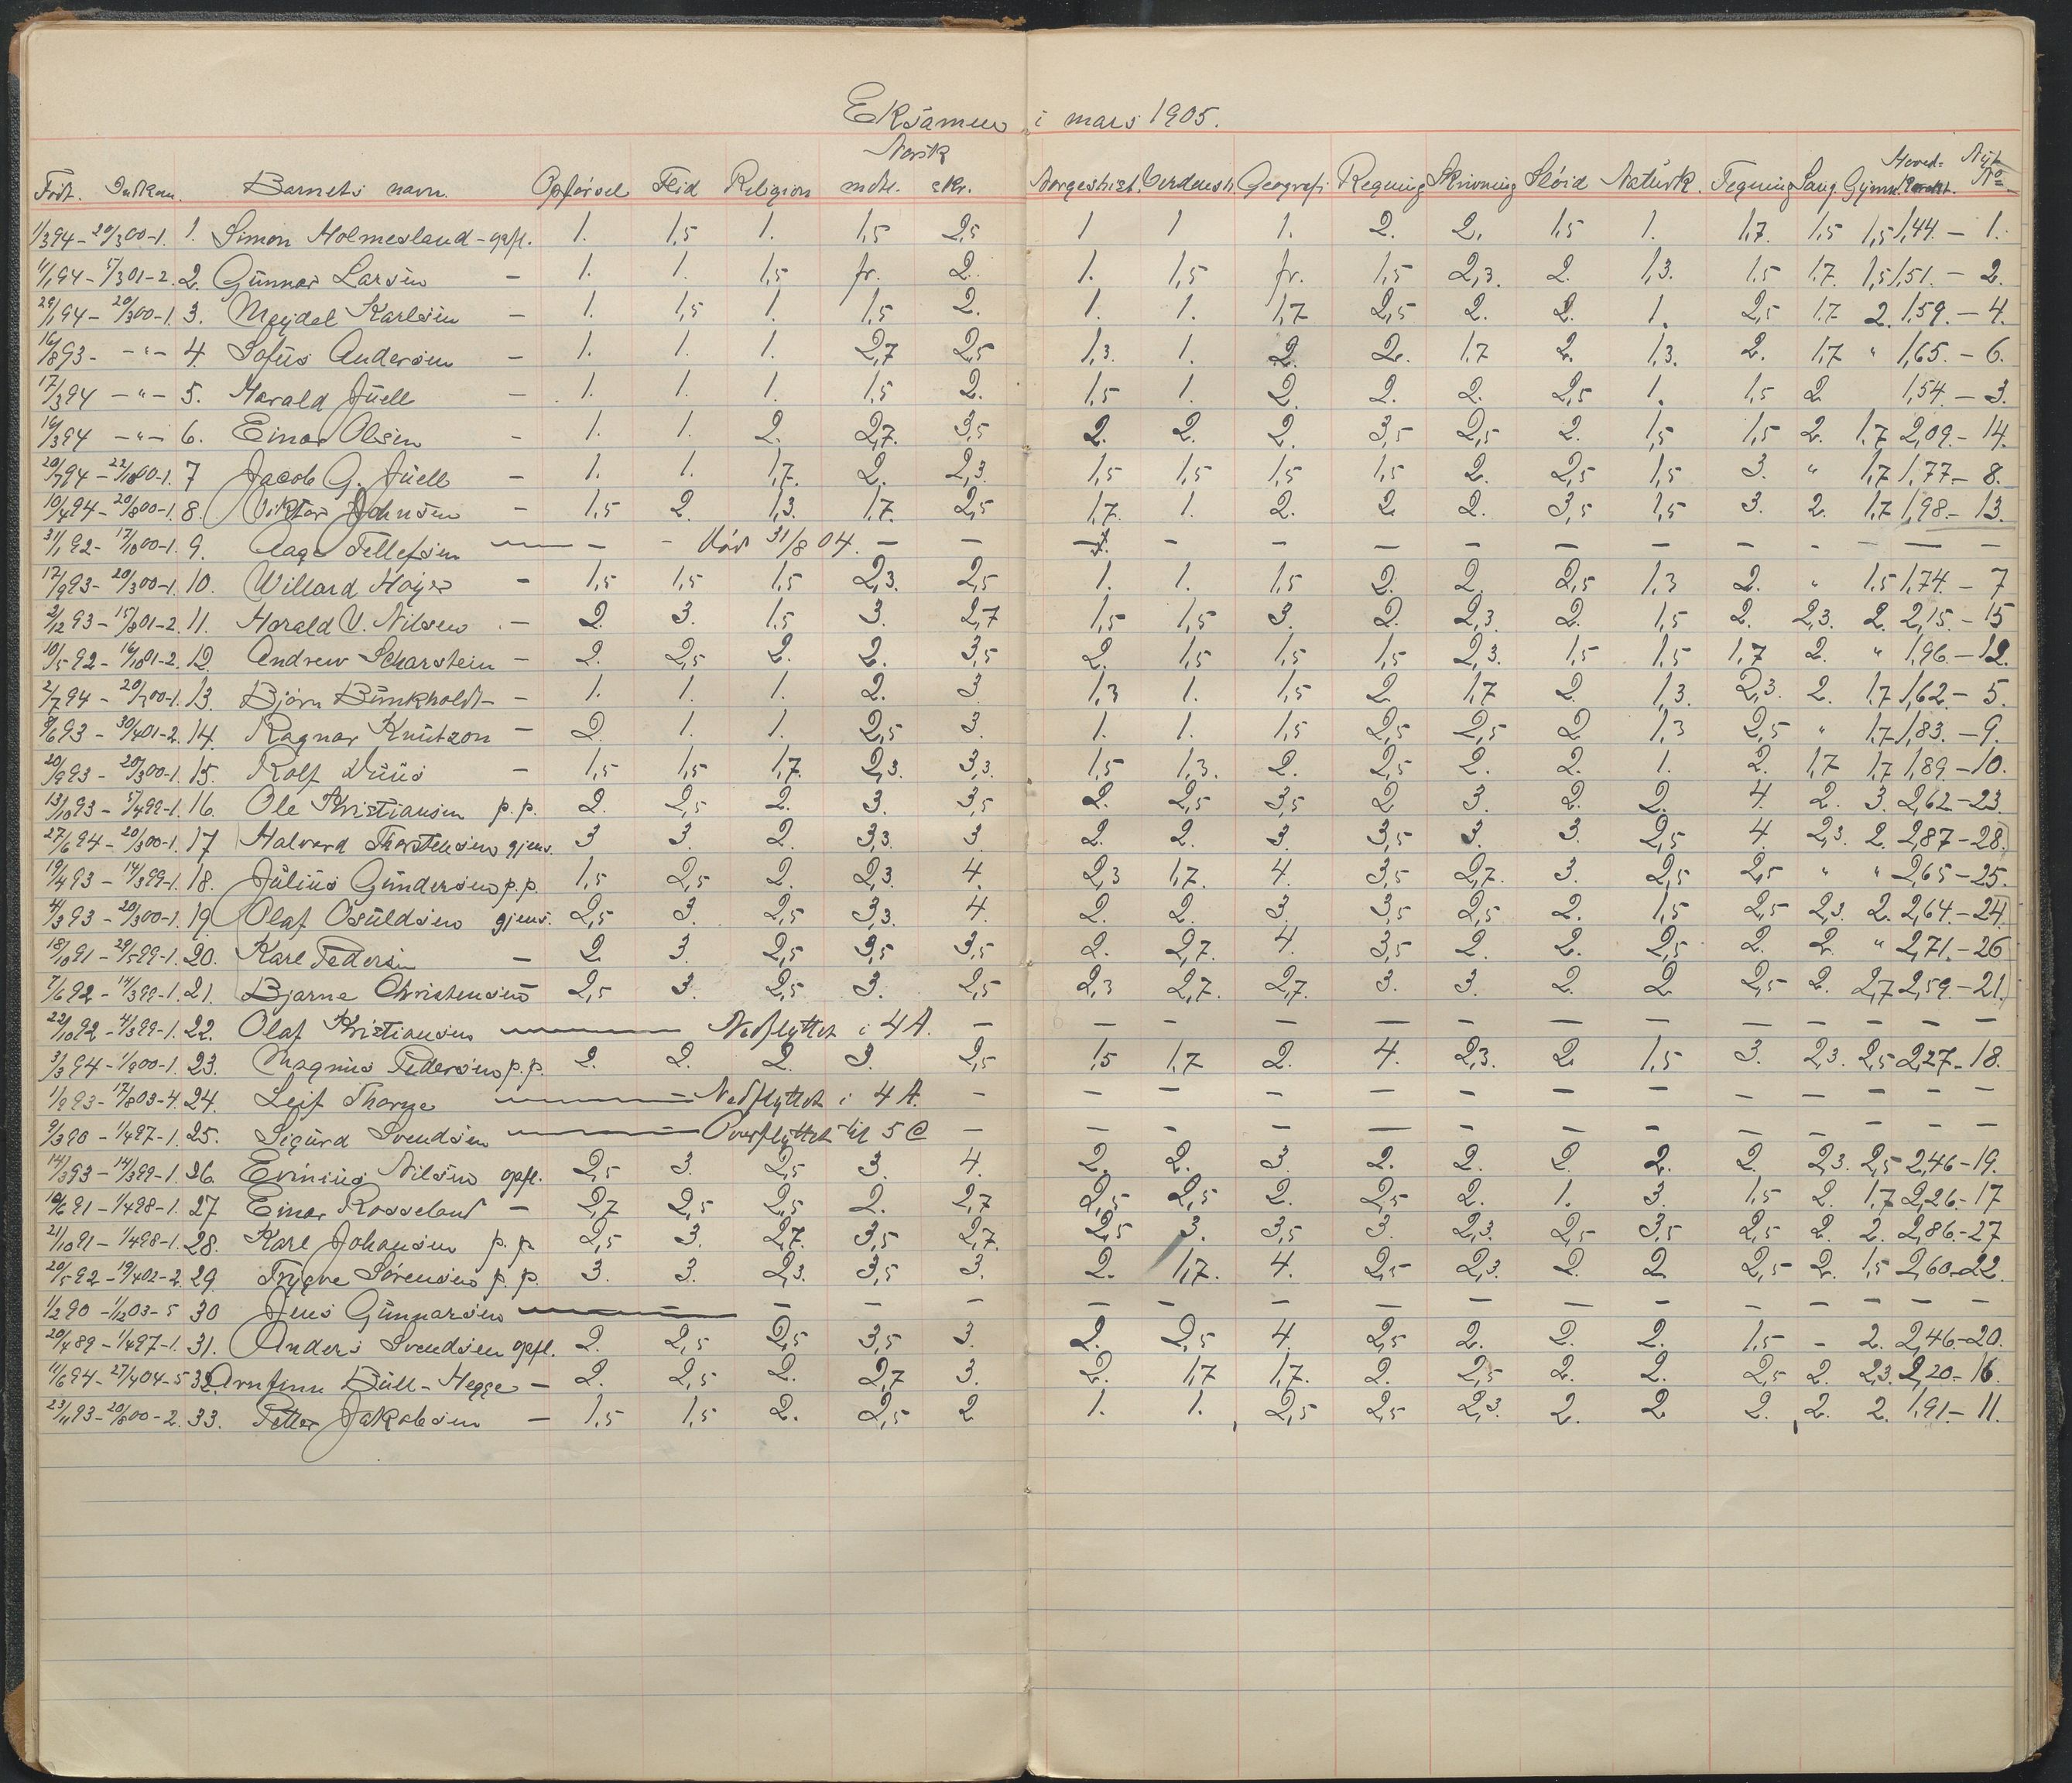 Eksamen i mars 1905.
Norsk
Født. Indkom. Barnets navn. Opførsel Flid Religion mdtl. skr. Norgeshist. Verdensh. Geografi Regning Skrivning Sløid Naturk. Tegning Sang. Gymn. Hoved-Karakt. Nyt No
1/3 94 - 20/3 00-1. 1. Simon Holmesland - opfl. 1. 1,5 1. 1,5 2,5 1 1 1. 2. 2. 1,5 1. 1,7. 1,5 1,5 1,44. - 1.
11/1 94 - 5/3 01-2. 2. Gunnar Larsen - 1. 1. 1,5 fr. 2. 1. 1,5 fr. 1,5 2,3. 2. 1,3. 1,5 1.7. 1,5 1,51. - 2.
29/1 94 - 20/3 00-1. 3. Meydel Karlsen - 1. 1,5 1. 1,5 2. 1. 1. 1,7 2,5 2. 2. 1. 2,5 1.7 2. 1,59. - 4.
16/8 93 - -"- 4. Sofus Andersen - 1. 1. 1. 2,7 2,5 1,3. 1. 2. 2. 1.7 2. 1,3. 2. 1,7 " 1,65. - 6.
17/3 94 - -"- 5. Harald Juell - 1. 1. 1. 1,5 2. 1,5 1. 2. 2. 2. 2,5 1. 1,5 2 1,54 - 3.
16/3 94 - -"- 6. Einar Olsen - 1. 1. 2. 2,7. 3,5 2. 2. 2. 3,5 2,5 2. 1,5 1,5 2. 1.7 2,09. - 14.
20/7 94 - 22/10 00-1. 7 Jacob G. Juell - 1. 1. 1,7. 2. 2,3. 1,5 1,5 1,5 1,5 2. 2,5 1,5 3. " 1,7 1,77. - 8.
10/4 94 - 20/8 00-1. 8. Viktor Johnsen - 1,5 2. 1,3. 1.7. 2,5 1,7. 1. 2. 2. 2. 3,5 1,5 3. 2. 1,7 1,98. - 13.
31/1 92 - 17/10 00-1. 9. Aage Tellefsen - - Død 31/8 04. - - - - - - - - - - - - - -
17/9 93 - 20/3 00-1. 10. Willard Høyer - 1,5 1,5 1,5 2,3. 2,5 1. 1. 1,5 2. 2. 2,5 1,3 2. " 1.5 1,74. - 7
2/12 93 - 15/8 01-2. 11. Harald V. Nilsen - 2. 3. 1,5 3. 2,7 1,5 1,5 3. 2. 2,3. 2. 1,5 2. 2,3. 2. 2,15. - 15
10/5 92 - 16/10 01-2. 12. Andrew Scharstein - 2. 2,5 2. 2. 3,5 2. 1,5 1,5 1,5 2,3. 1,5 1,5 1,7 2. " 1,96. - 12.
2/7 94 - 20/3 00-1. 13. Bjørn Bunkholdt - 1. 1. 1. 2. 3 1,3 1. 1,5 2. 1,7 2. 1,3. 2,3. 2. 1.7 1,62 - 5.
8/6 93 - 30/4 01-2. 14. Ragnar Knutzon - 2. 1. 1. 2,5 3. 1. 1. 1,5 2,5 2,5 2 1,3 2,5 " 1.7 1,83. - 9.
20/9 93 - 20/3 00-1. 15. Rolf Duus - 1,5 1,5 1,7. 2,3. 3,3. 1,5 1,3. 2. 2,5 2. 2. 1. 2. 1,7 1,7 1,89. - 10.
13/10 93 - 5/4 99-1. 16. Ole Kristiansen p.p. 2. 2,5 2. 3. 3,5 2. 2,5 3,5 2 3. 2. 2. 4. 2. 3. 2,62 - 23.
27/6 94 - 20/3 00-1. 17 Halvard Thorstensen gjens. 3 3. 2. 3,3. 3. 2. 2. 3. 3,5 3. 3. 2,5 4. 2,3. 2. 2,87 - 28.
19/4 93 - 14/3 99-1. 18. Julius Gundersen p.p. 1,5 2,5 2. 2,3. 4. 2,3 1,7. 4. 3,5 2,7. 3. 2,5 2,5 " " 2,65 - 25.
4/3 93 - 20/3 00-1. 19. Olaf Osuldsen gjens. 2,5 3. 2,5 3,3. 4. 2. 2. 3. 3,5 2,5 2. 1,5 2,5 2,3. 2. 2,64. - 24.
18/10 91 - 29/5 99-1. 20. Karl Pedersen - 2. 3. 2,5 3,5 3,5 2. 2,7. 4. 3,5 2. 2. 2,5 2. 2. " 2,71. - 26
7/6 92 - 14/3 99-1. 21. Bjarne Christensen 2,5 3. 2,5 3. 2,5 2,3 2,7. 2,7. 3. 3. 2. 2 2,5 2. 2,7 2,59. - 21.
22/10 92 - 4/3 99-1. 22. Olaf Kristiansen - Nedflyttet i 4 A. - - - - - - - - - - - - -
3/3 94 - 1/9 00-1. 23. Magnus Pedersen p.p. 2. 2. 2. 3. 2,5 1,5 1,7 2. 4. 2,3. 2. 1,5 3. 2,3. 2,5 2,27. - 18.
1/9 93 - 17/8 03-4. 24. Leif Thorne - Nedflyttet i 4 A. - - - - - - - - - - - - -
9/3 90 - 1/4 97-1. 25. Sigurd Svendsen - Overflyttet til 5 C - - - - - - - - - - - - -
14/3 93 - 14/3 99-1. 26. Erminius Nilsen opfl. 2,5 3. 2,5 3. 4. 2. 2. 3. 2. 2. 2. 2. 2. 2,3. 2,5 2,46 - 19.
10/6 91 - 1/4 98-1. 27 Einar Rosseland - 2,7 2,5 2,5 2. 2,7 2,5 2,5 2. 2,5 2. 1. 3. 1,5 2. 1.7 2,26. - 17
21/10 91 - 1/4 98-1. 28. Karl Johansen p.p. 2,5 3. 2,7. 3,5 2,7. 2,5 3. 3,5 3. 2,3. 2,5 3,5 2,5 2. 2. 2,86. - 27
20/5 92 - 19/4 02-2. 29 Trygve Sørensen p.p. 3. 3. 2,3. 3,5 3. 2. 1,7. 4. 2,5 2,3. 2. 2. 2,5 2. 1,5 2,60. - 22.
1/2 90 - 1/12 03-5 30 Jens Gunnarsen - - - - - - - - - - - - - - -
20/4 89 - 1/4 97-1. 31. Anders Svendsen opfl. 2. 2,5 2,5 3,5 3. 2. 2,5 4. 2,5 2. 2. 2. 1,5 - 2. 2,46 - 20.
11/6 94 - 27/4 04-5 32. Arnfinn Büll-Hegge - 2. 2,5 2. 2,7 3. 2. 1,7 1,7. 2. 2,5 2. 2. 2,5 2. 2,3. 2,20 - 16.
23/11 93 - 20/8 00-2. 33. Petter Jakobsen - 1,5 1,5 2. 2,5 2 1. 1. 2,5 2,5 2,3. 2. 2 2. 2. 2. 1,91 - 11.